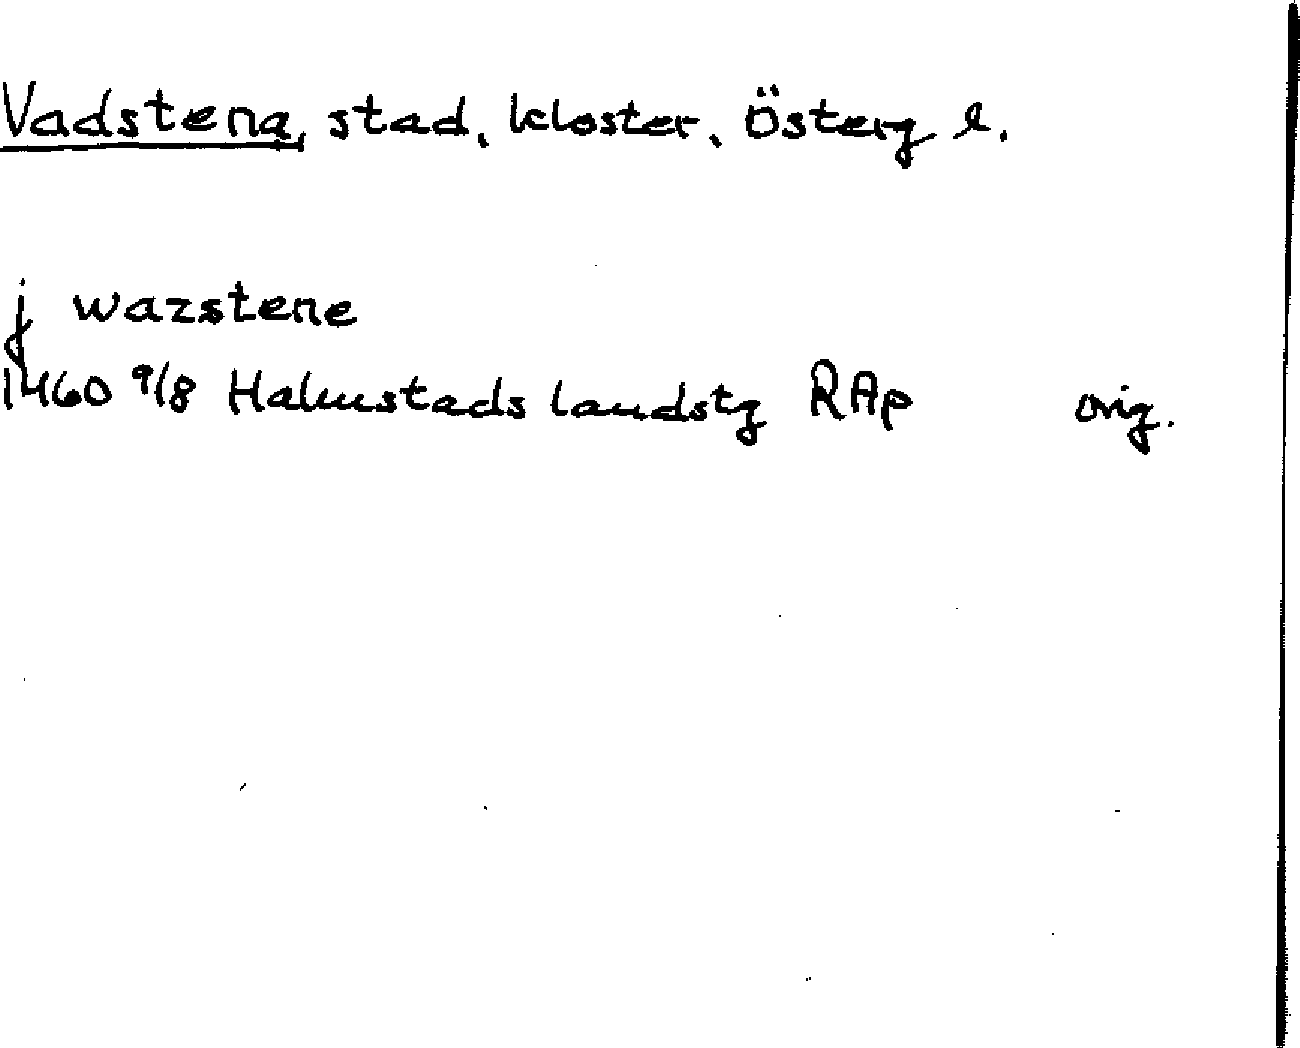 Vadstena, stad, kloster, Österg l.
j wazstene
1460 9/8 Halmstads landstg RAp orig.